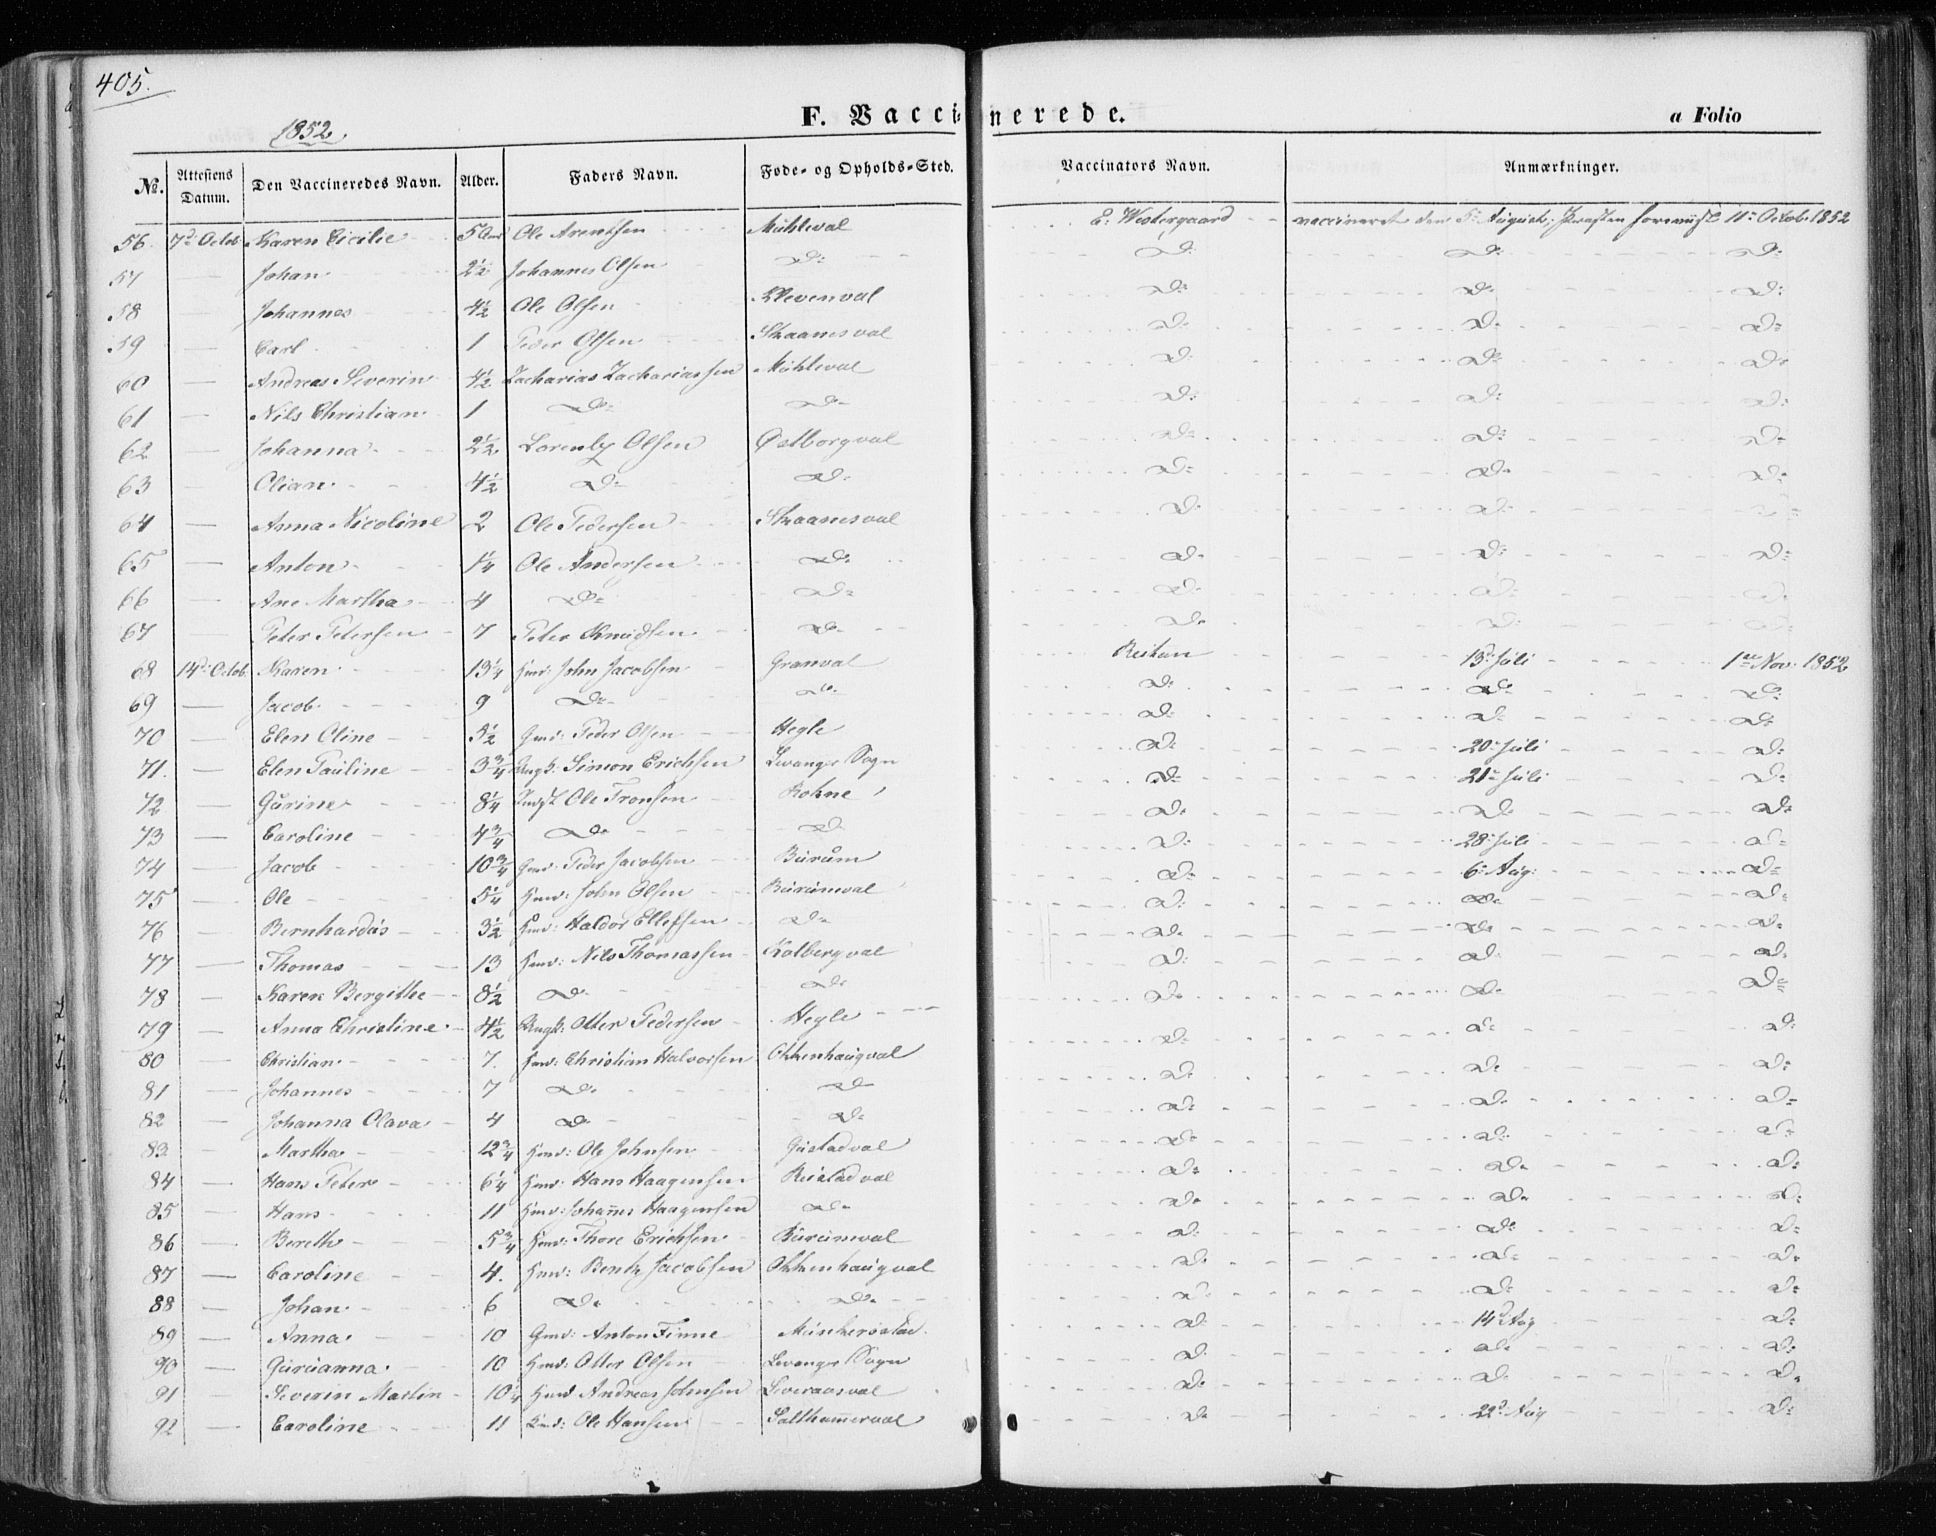 405.
1852.
F. Vaccinerede.
a Folio
No. | Attestens Datum. | Den Vaccineredes Navn. | Alder. | Faders Navn. | Føde- og Opholds-Sted. | Vaccinators Navn. | Anmærkninger.
56. 7d. Octob. Karen Cicilie 5 Aar Ole Arentsen Mühleval E. Westergaard vaccineret den 5te August; Præsten foreviist 11te Octob. 1852
57 — Johan 2½ Johannes Olsen Do Do Do Do
58 — Johannes 4½ Ole Olsen Klevenval Do Do Do
59 — Carl 1 Peder Olsen Skaanesval Do Do Do
60 — Andreas Severin 4½ Zacharias Zachariassen Mühleval Do Do Do
61 — Nils Christian 1 Do Do Do Do Do
62 — Johanna 2½ Lorentz Olsen Østborgval Do Do Do
63 — Olian 4½ Do Do Do Do Do
64 — Anna Nicoline 2 Ole Pedersen Skaanesval Do Do Do
65 — Anton 1¼ Ole Andersen Do Do Do Do
66 — Ane Martha 4 Do Do Do Do Do
67 — Peter Petersen 7 Peter Knudsen Do Do Do Do
68 14d. Octob. Karen 13¼ Hmd: John Jacobsen Granval Reitan 13d Juli 1te Nov. 1852
69 — Jacob 9 Do Do Do Do Do
70 — Elen Oline 3½ Gmd: Peder Olsen Hegle Do Do Do
71. — Elen Pauline 3¾ Ungk: Simon Erichsen Levanger Sogn Do 20. Juli Do
72 — Gurine 8¼ Indst. Ole Tronsen Rohne Do 21. Juli Do
73 — Caroline 4¾ Do Do Do Do Do
74 — Jacob 10¾ Gmd: Peder Jacobsen Burum Do 28. Juli Do
75 — Ole 5¼ Hmd: John Olsen Burumval Do 6. Aug: Do
76 — Bernhardus 3½ Hmd: Haldor Ellefsen Do Do Do Do
77 — Thomas 13 Hmd: Nils Thomassen Kolbergval Do Do Do
78 — Karen Bergithe 8½ Do Do Do Do Do
79 — Anna Christine 4½ Ungk: Otter Pedersen Hegle Do Do Do
80 — Christian 7. Hmd: Christian Halvorsen Okkenhaugval Do Do Do
81 — Johannes 7 Do Do Do Do Do
82 — Johanna Olava 4 Do Do Do Do Do
83 — Martha 12¾ Hmd: Ole Johnsen Gustadval Do Do Do
84 — Hans Peter 6¼ Hmd: Hans Haagensen Reistadval Do Do Do
85 — Hans 11 Hmd: Johannes Haagensen Do Do Do Do
86 — Bereth 5¾ Hmd: Thore Erichsen Burumval Do Do Do
87 — Caroline 4. Hmd: Bentz Jacobsen Okkenhaugval Do Do Do
88 — Johan 6 Do Do Do Do Do
89 — Anna 10 Gmd: Anton Finne Munkerøstad Do 14d Aug Do
90 — Gurianna 10 Hmd: Otter Olsen Levanger Sogn Do Do Do
91 — Severin Martin 10¼ Hmd Andreas Johnsen Leveraasval Do Do Do
92 — Caroline 11 Hmd: Ole Hansen Salthammerval Do 22d Aug Do